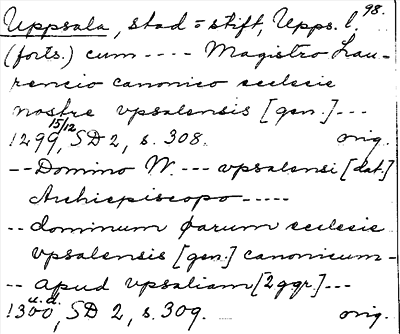 98.
Uppsala, stad = stift, Upps. l.
(forts.) cum ---- Magistro Lau-
rencio canonico ecclesie
nostre vpsalensis [gen.] ---
1299 15/12, SD 2, s. 308. orig.
-- Domino W. --- vpsalensi [dat.]
Archiepiscopo -----
-- dominum Carum ecclesie
vpsalensis [gen.] canonicum-
-- apud vpsaliam [2ggr.] ---
1300 u.d., SD 2, s. 309. orig.